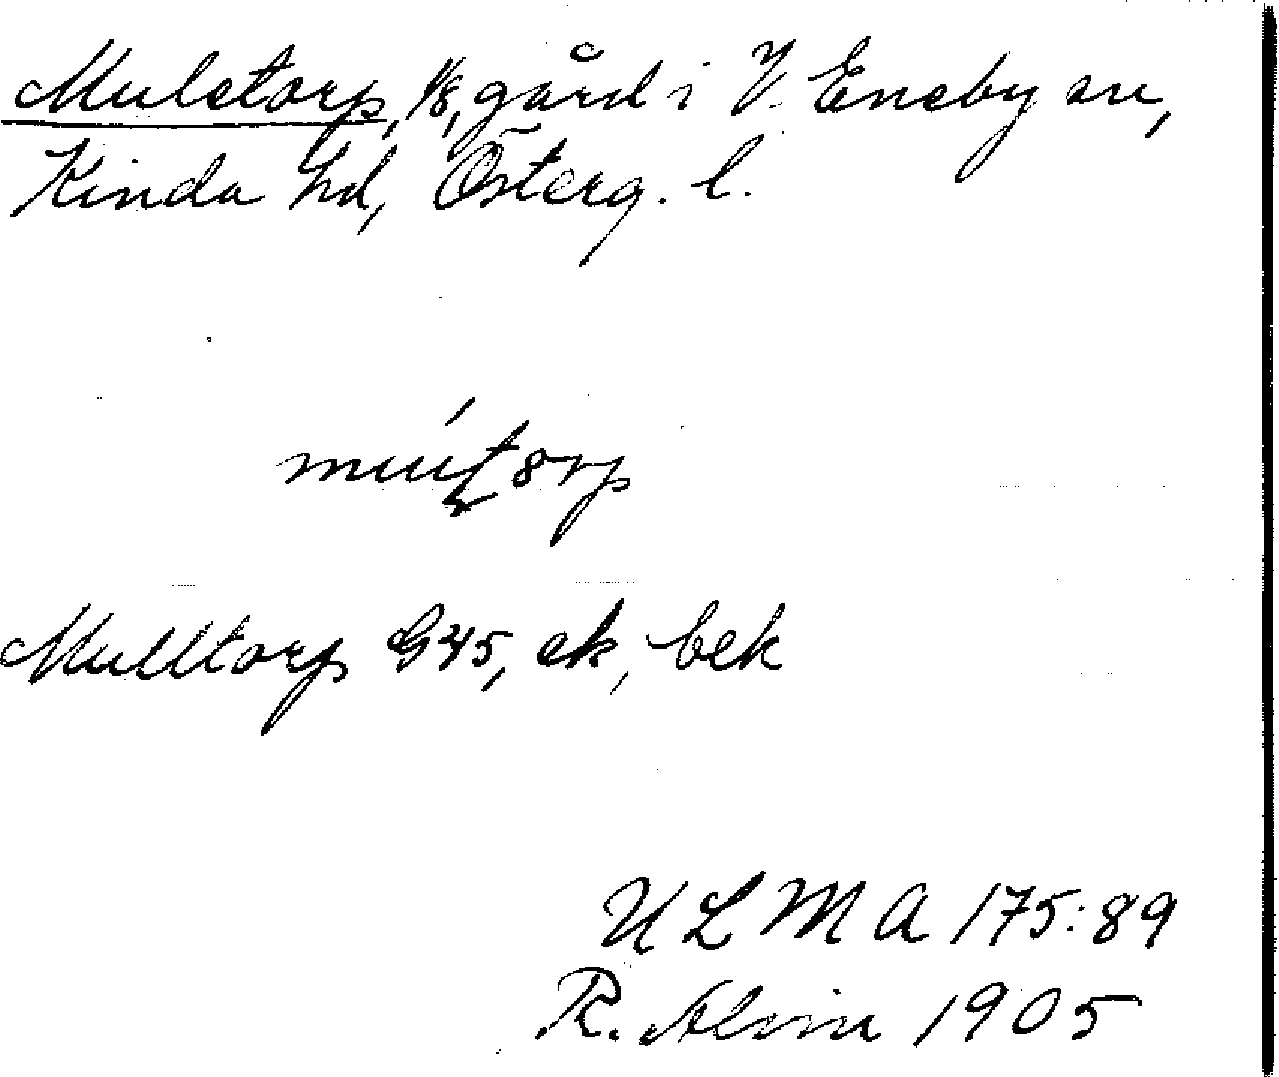 Muletorp, 1/8, gård i V. Eneby sn,
Kinda hd, Österg. l.
Mulltorp G45, ek, bek
ULMA 175:89
R. Alvin 1905